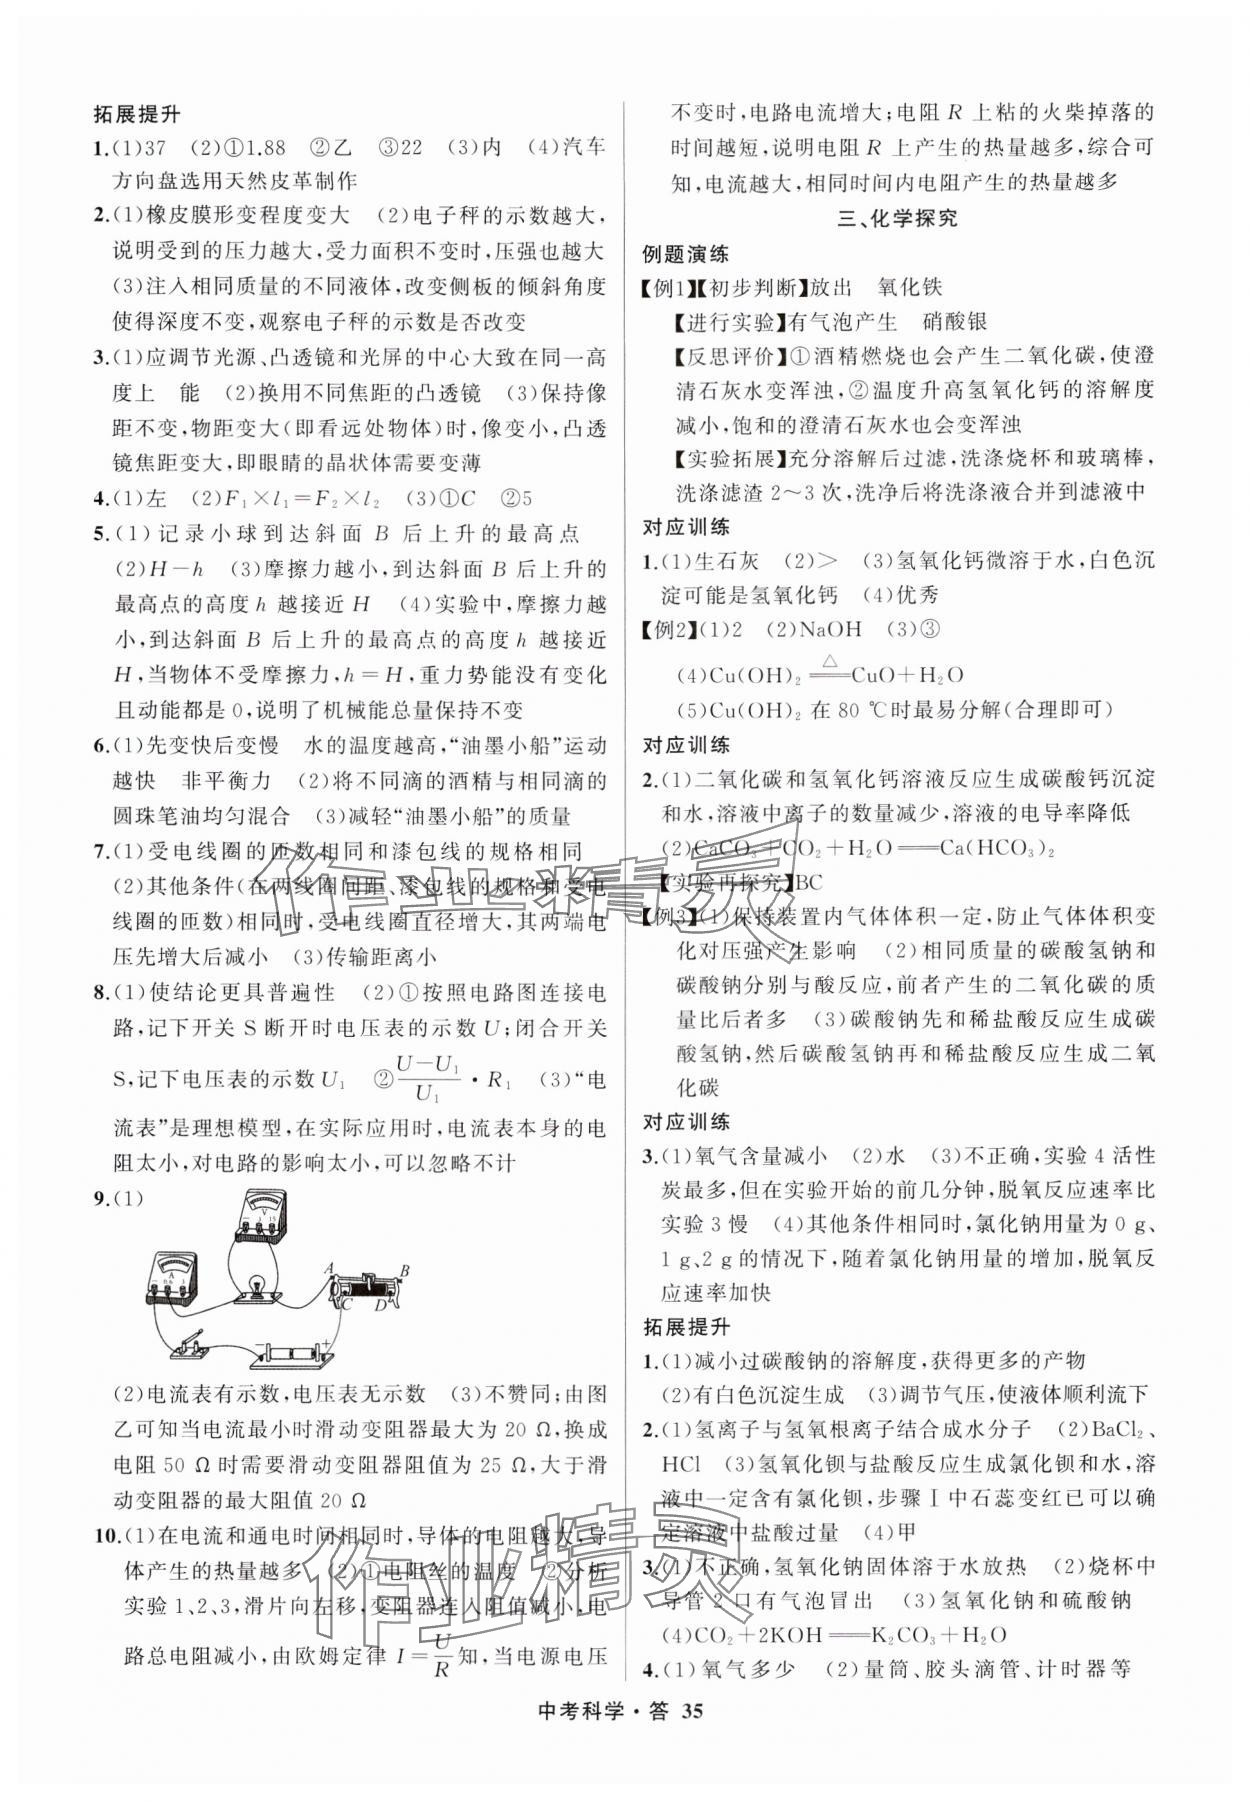 拓展提升
1.(1)37　(2)①1.88　②乙　③22　(3)内　(4)汽车
方向盘选用天然皮革制作
2.(1)橡皮膜形变程度变大　(2)电子秤的示数越大,
说明受到的压力越大,受力面积不变时,压强也越大
(3)注入相同质量的不同液体,改变侧板的倾斜角度
使得深度不变,观察电子秤的示数是否改变
3.(1)应调节光源、凸透镜和光屏的中心大致在同一高
度上　能　(2)换用不同焦距的凸透镜　(3)保持像
距不变,物距变大(即看远处物体)时,像变小,凸透
镜焦距变大,即眼睛的晶状体需要变薄
4.(1)左　(2)F₁×l₁=F₂×l₂　(3)①C　②5
5.(1)记录小球到达斜面 B 后上升的最高点
(2)H−h　(3)摩擦力越小,到达斜面 B 后上升的
最高点的高度 h 越接近 H　(4)实验中,摩擦力越
小,到达斜面 B 后上升的最高点的高度 h 越接近
H,当物体不受摩擦力,h=H,重力势能没有变化
且动能都是 0,说明了机械能总量保持不变
6.(1)先变快后变慢　水的温度越高,“油墨小船”运动
越快　非平衡力　(2)将不同滴的酒精与相同滴的
圆珠笔油均匀混合　(3)减轻“油墨小船”的质量
7.(1)受电线圈的匝数相同和漆包线的规格相同
(2)其他条件(在两线圈间距、漆包线的规格和受电
线圈的匝数)相同时,受电线圈直径增大,其两端电
压先增大后减小　(3)传输距离小
8.(1)使结论更具普遍性　(2)①按照电路图连接电
路,记下开关 S 断开时电压表的示数 U;闭合开关
S,记下电压表的示数 U₁　②(U−U₁)/U₁・R₁　(3)“电
流表”是理想模型,在实际应用时,电流表本身的电
阻太小,对电路的影响太小,可以忽略不计
9.(1)
V
− 3 15
A
− 0.6 3
A B
C D
− +
(2)电流表有示数,电压表无示数　(3)不赞同;由图
乙可知当电流最小时滑动变阻器最大为 20 Ω,换成
电阻 50 Ω 时需要滑动变阻器阻值为 25 Ω,大于滑
动变阻器的最大阻值 20 Ω
10.(1)在电流和通电时间相同时,导体的电阻越大,导
体产生的热量越多　(2)①电阻丝的温度　②分析
实验 1、2、3,滑片向左移,变阻器连入阻值减小,电
路总电阻减小,由欧姆定律 I=U/R知,当电源电压
不变时,电路电流增大;电阻 R 上粘的火柴掉落的
时间越短,说明电阻 R 上产生的热量越多,综合可
知,电流越大,相同时间内电阻产生的热量越多
三、化学探究
例题演练
【例1】【初步判断】放出　氧化铁
【进行实验】有气泡产生　硝酸银
【反思评价】①酒精燃烧也会产生二氧化碳,使澄
清石灰水变浑浊,②温度升高氢氧化钙的溶解度
减小,饱和的澄清石灰水也会变浑浊
【实验拓展】充分溶解后过滤,洗涤烧杯和玻璃棒,
洗涤滤渣 2～3 次,洗净后将洗涤液合并到滤液中
对应训练
1.(1)生石灰　(2)>　(3)氢氧化钙微溶于水,白色沉
淀可能是氢氧化钙　(4)优秀
【例2】(1)2　(2)NaOH　(3)③
(4)Cu(OH)₂ ══△══ CuO+H₂O
(5)Cu(OH)₂ 在 80 ℃时最易分解(合理即可)
对应训练
2.(1)二氧化碳和氢氧化钙溶液反应生成碳酸钙沉淀
和水,溶液中离子的数量减少,溶液的电导率降低
(2)CaCO₃+CO₂+H₂O═══Ca(HCO₃)₂
【实验再探究】BC
【例3】(1)保持装置内气体体积一定,防止气体体积变
化对压强产生影响　(2)相同质量的碳酸氢钠和
碳酸钠分别与酸反应,前者产生的二氧化碳的质
量比后者多　(3)碳酸钠先和稀盐酸反应生成碳
酸氢钠,然后碳酸氢钠再和稀盐酸反应生成二氧
化碳
对应训练
3.(1)氧气含量减小　(2)水　(3)不正确,实验 4 活性
炭最多,但在实验开始的前几分钟,脱氧反应速率比
实验 3 慢　(4)其他条件相同时,氯化钠用量为 0 g、
1 g,2 g 的情况下,随着氯化钠用量的增加,脱氧反
应速率加快
拓展提升
1.(1)减小过碳酸钠的溶解度,获得更多的产物
(2)有白色沉淀生成　(3)调节气压,使液体顺利流下
2.(1)氢离子与氢氧根离子结合成水分子　(2)BaCl₂、
HCl　(3)氢氧化钡与盐酸反应生成氯化钡和水,溶
液中一定含有氯化钡,步骤Ⅰ中石蕊变红已可以确
定溶液中盐酸过量　(4)甲
3.(1)不正确,氢氧化钠固体溶于水放热　(2)烧杯中
导管 2 口有气泡冒出　(3)氢氧化钠和硫酸钠
(4)CO₂+2KOH═══K₂CO₃+H₂O
4.(1)氧气多少　(2)量筒、胶头滴管、计时器等
中考科学・答　35
作业精灵
作业精灵